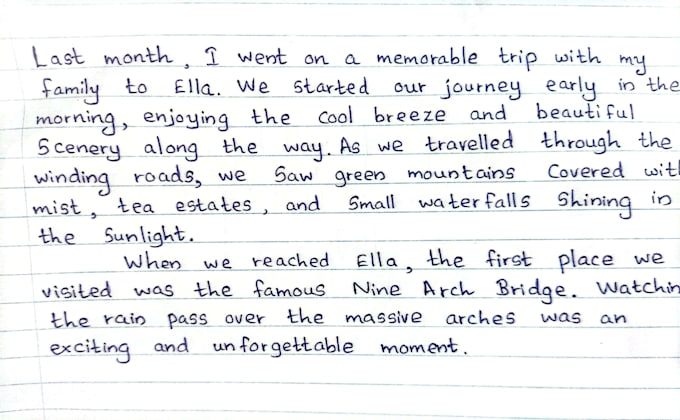 Last month, I went on a memorable trip with my
family to Ella. We started our journey early in the
morning, enjoying the cool breeze and beautiful
Scenery along the way. As we travelled through the
winding roads, we saw green mountains Covered wit
mist, tea estates, and small waterfalls Shining in
the Sunlight.
When we reached Ella, the first place we
visited was the famous Nine Arch Bridge. Watchin
the rain pass over the massive arches was an
exciting and unforgettable moment.